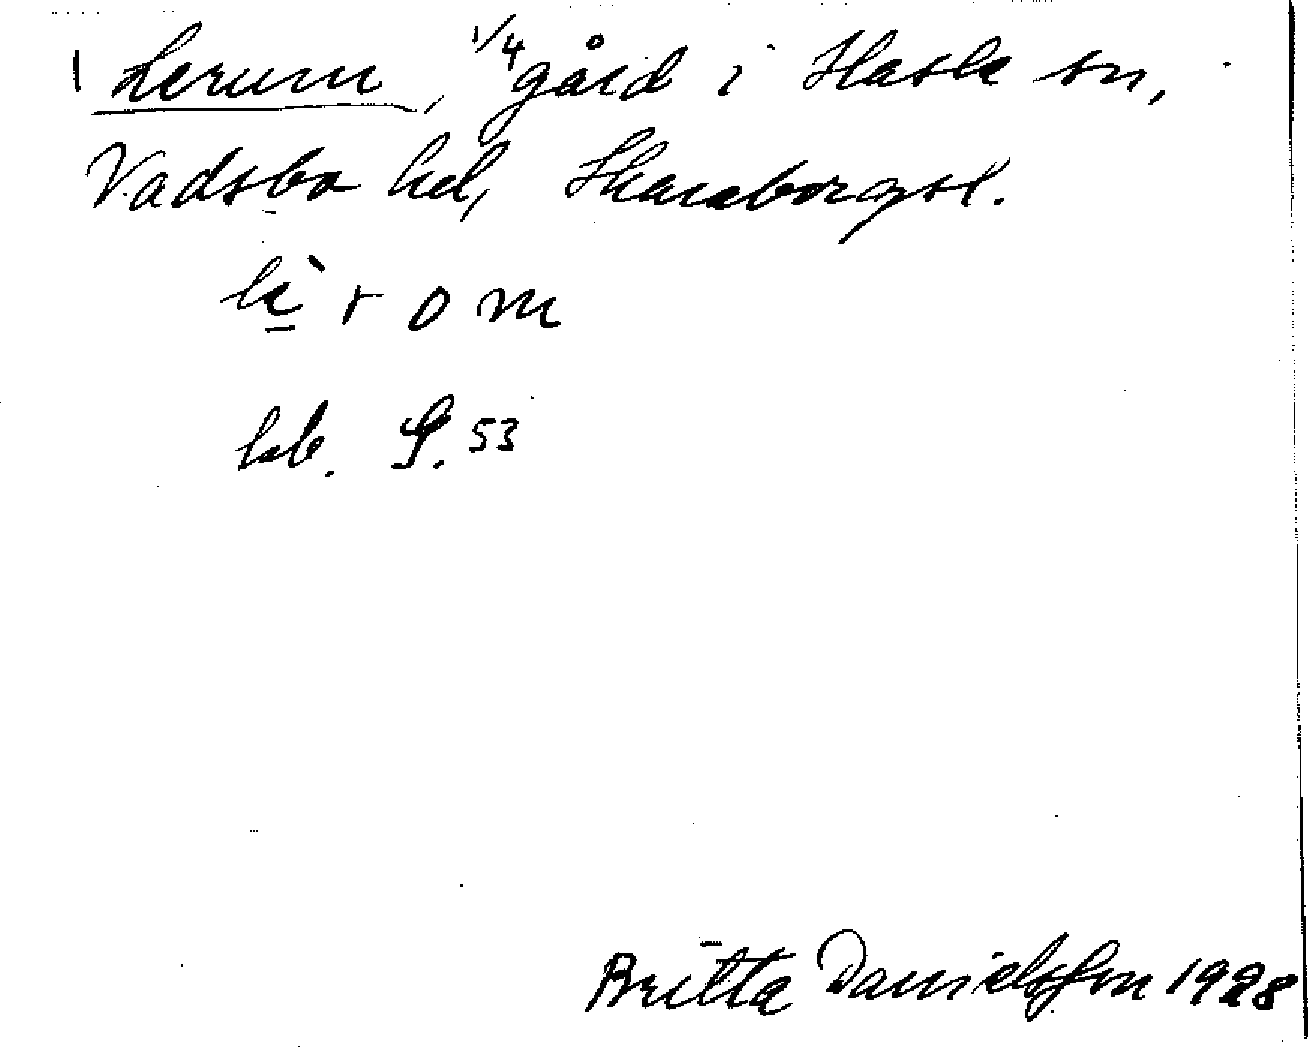 1 Lerum, 1/4 gård i Hasle sn,
Vadsbo hd, Skaraborgsl.
lè r o m
lsb. S. 53
Britta Danielsson 1928